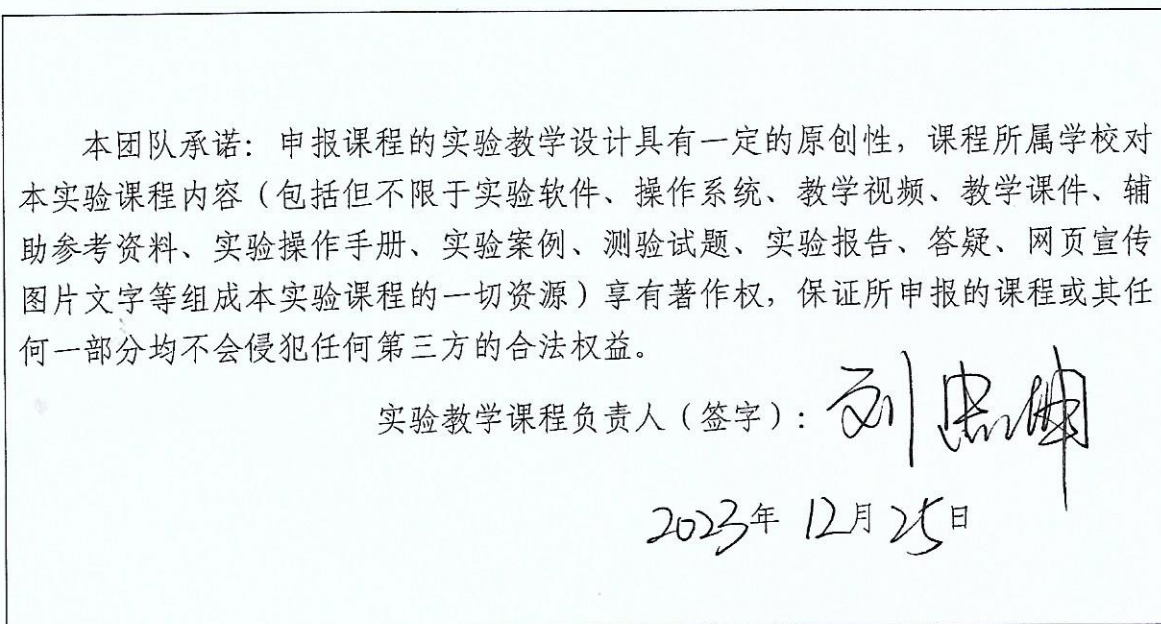 本团队承诺：申报课程的实验教学设计具有一定的原创性，课程所属学校对
本实验课程内容（包括但不限于实验软件、操作系统、教学视频、教学课件、辅
助参考资料、实验操作手册、实验案例、测验试题、实验报告、答疑、网页宣传
图片文字等组成本实验课程的一切资源）享有著作权，保证所申报的课程或其任
何一部分均不会侵犯任何第三方的合法权益。
实验教学课程负责人（签字）：刘忠坤
2023年 12月 25日